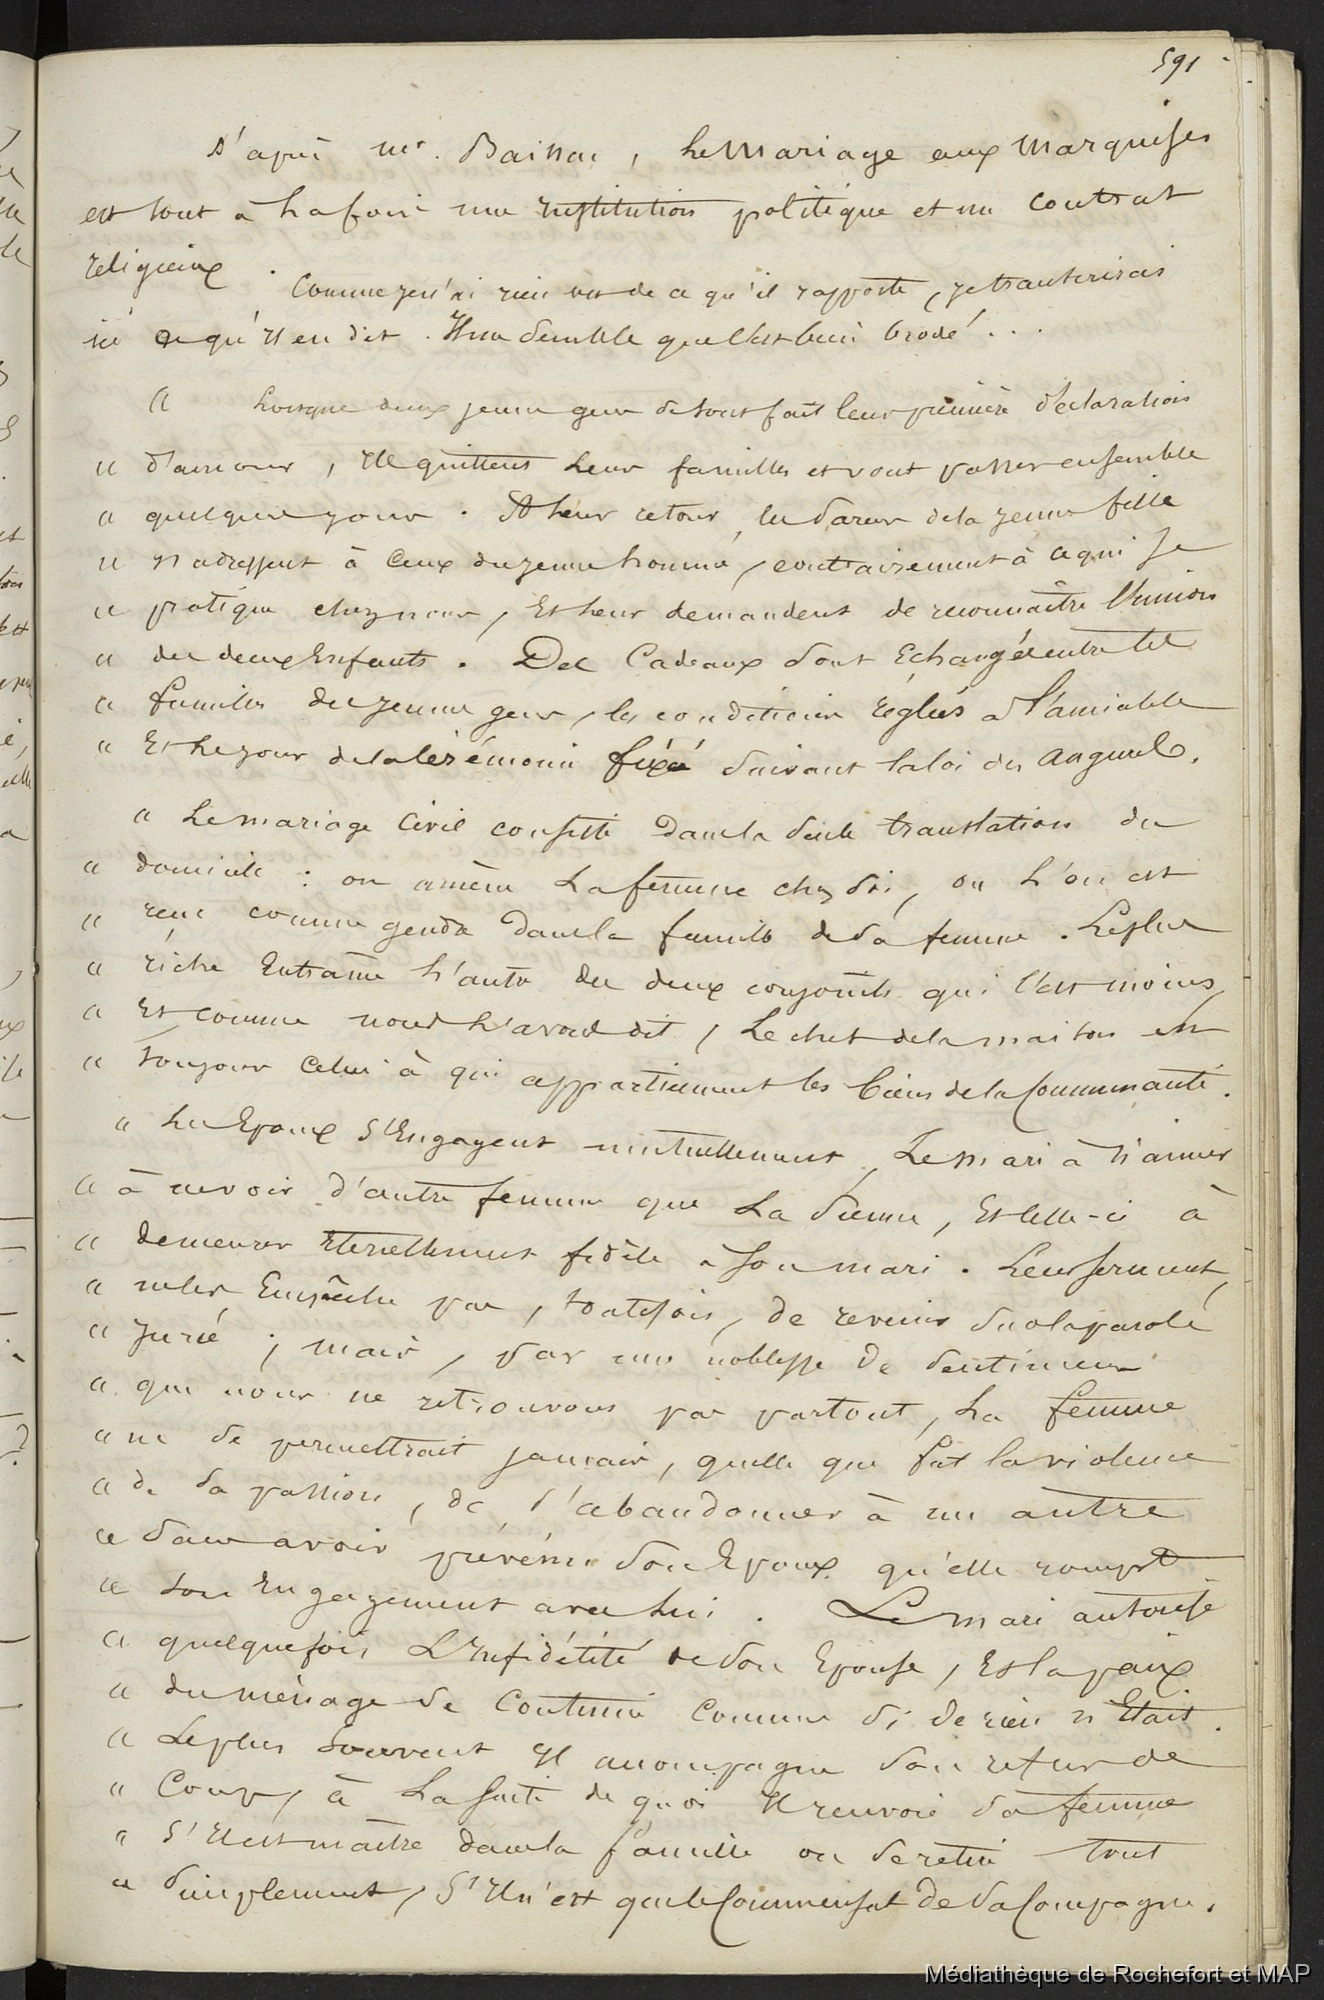 591
D'après Mr. Baissac, Le Mariage aux Marquises
est tout à la fois une Institution politique et un Contrat
religieux.
Comme je n'ai rien vu de ce qu'il rapporte, je transcrirai
ici ce qu'Il en dit. Il me semble que c'est bien brodé...
" Lorsque deux jeunes gens se sont fait leur première déclaration
" d'amour, Ils quittent Leurs familles et vont passer ensemble
" quelques jours. A Leur retour, les parens de la jeune fille
" s'adressent à Ceux du jeune homme, contrairement à ce qui se
" pratique chez nous, Et Leur demandent de reconnaître l'union
" des deux Enfants. Des Cadeaux sont Echangés entre les
" familles des jeunes gens, les conditions réglées à l'amiable
" Et Le jour de la Cérémonie fixé suivant la loi des augures.
" Le mariage Civil consiste dans la seule translation du
" domicile : on amène La femme chez soi, ou L'on est
" reçu comme gendre dans la famille de sa femme. Le plus
" riche Entraîne L'autre des deux conjoints qui l'est moins,
" Et comme nous L'avons dit, Le chef de la maison est
" toujours Celui à qui appartiennent les biens de la Communauté.
" Les Epoux s'Engagent mutuellement, Le Mari à n'aimer
" à n'avoir d'autre femme que La sienne, Et Celle-ci à
" demeurer Eternellement fidèle à Son mari. Leur serment,
" ne les Empêche pas, toutefois, de revenir sur la parole
" Jurée ; mais, par une noblesse de sentimens
" que nous ne retrouvons pas partout, La femme
" ne se permettrait jamais, quelle que fut la violence
" de sa passion, de s'abandonner à un autre
" sans avoir prévenu son Epoux qu'elle rompt
" son Engagement avec Lui. Le mari autorise
" quelquefois L'Infidélité de son Epouse, Et la paix
" du ménage se Continue Comme si de rien n'Etait.
" Le plus Souvent Il accompagne son refus de
" Coups, à La suite de quoi Il renvoie sa femme
" S'Il est maître dans la famille ou se retire tout
" simplement, S'Il n'est que le Commensal de sa Compagne.
Médiathèque de Rochefort et MAP